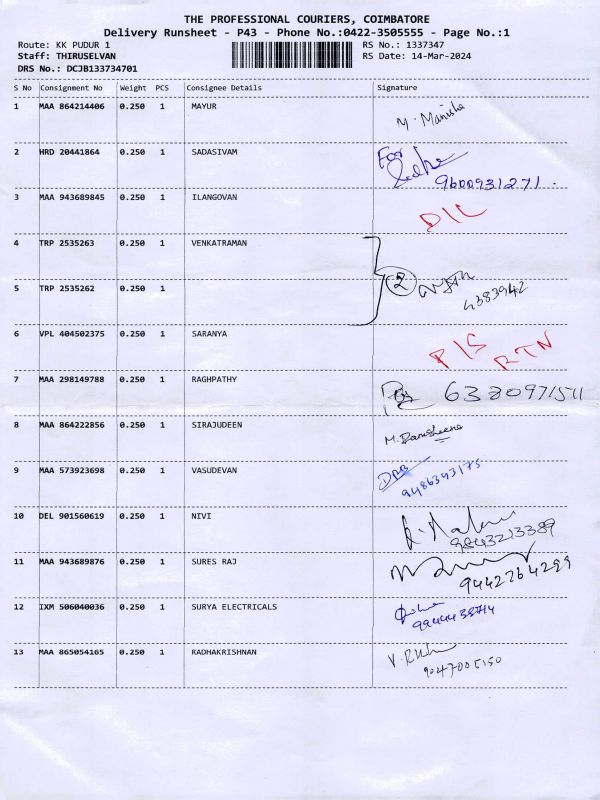 THE PROFESSIONAL COURIERS, COIMBATORE
Delivery Runsheet - P43 - Phone No.:0422-3505555 - Page No.:1
Route: KK PUDUR 1 RS No.: 1337347
Staff: THIRUSELVAN RS Date: 14-Mar-2024
DRS No.: DCJB133734701
S No Consignment No Weight PCS Consignee Details Signature
1 MAA 864214406 0.250 1 MAYUR M. Manisha
2 HRD 20441864 0.250 1 SADASIVAM For
9600931271.
3 MAA 943689845 0.250 1 ILANGOVAN D/L
4 TRP 2535263 0.250 1 VENKATRAMAN
5 TRP 2535262 0.250 1 2
4383942
6 VPL 404502375 0.250 1 SARANYA P/S RTN
7 MAA 298149788 0.250 1 RAGHPATHY 6380971511
8 MAA 864222856 0.250 1 SIRAJUDEEN
9 MAA 573923698 0.250 1 VASUDEVAN
9486343175
10 DEL 901560619 0.250 1 NIVI
9843213389
11 MAA 943689876 0.250 1 SURES RAJ
9442764299
12 IXM 506040036 0.250 1 SURYA ELECTRICALS
13 MAA 865054165 0.250 1 RADHAKRISHNAN
9047005150